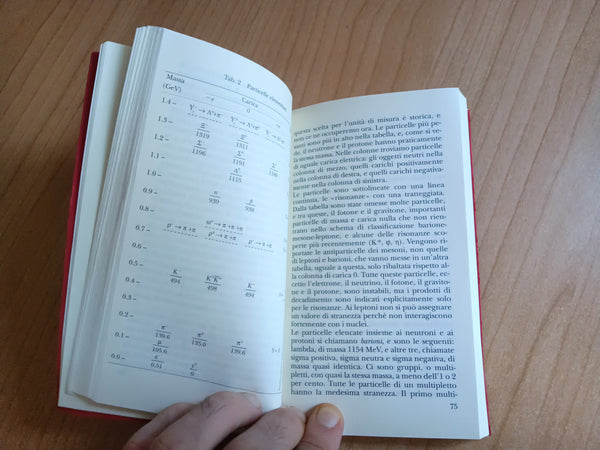 Tab. 2 Particelle elementari
Massa
(GeV)
Carica
0
1.4 –
1.3 –
1319
1311
1.2 –
1196
1191
1186
1.1 –
1115
1.0 –
0.9 –
939
938
0.8 –
0.7 –
0.6 –
0.5 –
K
494
498
494
0.4 –
0.3 –
0.2 –
0.1 –
139.6
135.0
139.6
μ
105.6
0.0 –
0.51
0
questa scelta per l'unità di misura è storica, e
non ce ne occuperemo ora. Le particelle più pe-
santi sono più in alto nella tabella, e, come si ve-
de, il neutrone e il protone hanno praticamente
la stessa massa. Nelle colonne troviamo particelle
di uguale carica elettrica: gli oggetti neutri nella
colonna di mezzo, quelli carichi positivamente
nella colonna di destra, e quelli carichi negativa-
mente nella colonna di sinistra.
Le particelle sono sottolineate con una linea
continua, le «risonanze» con una tratteggiata.
Dalla tabella sono state omesse molte particelle,
e tra queste, il fotone e il gravitone, importanti
particelle di massa e carica nulla che non rien-
trano nello schema di classificazione barione-
mesone-leptone, e alcune delle risonanze sco-
perte più recentemente (K*, φ, η). Vengono ri-
portate le antiparticelle dei mesoni, ma non quel-
le di leptoni e barioni, che vanno messe in un'altra
tabella, uguale a questa, solo ribaltata rispetto al-
la colonna di carica 0. Tutte queste particelle, ec-
cetto l'elettrone, il neutrino, il fotone, il gravito-
ne e il protone, sono instabili, ma i prodotti di
decadimento sono indicati esplicitamente solo
per le risonanze. Ai leptoni non si può assegnare
un valore di stranezza perché non interagiscono
fortemente con i nuclei.
Le particelle elencate insieme ai neutroni e ai
protoni si chiamano barioni, e sono le seguenti:
lambda, di massa 1154 MeV, e altre tre, chiamate
sigma positiva, sigma neutra e sigma negativa, di
massa quasi identica. Ci sono gruppi, o multi-
pletti, con quasi la stessa massa, a meno dell'1 o 2
per cento. Tutte le particelle di un multipletto
hanno la medesima stranezza. Il primo multi-
75